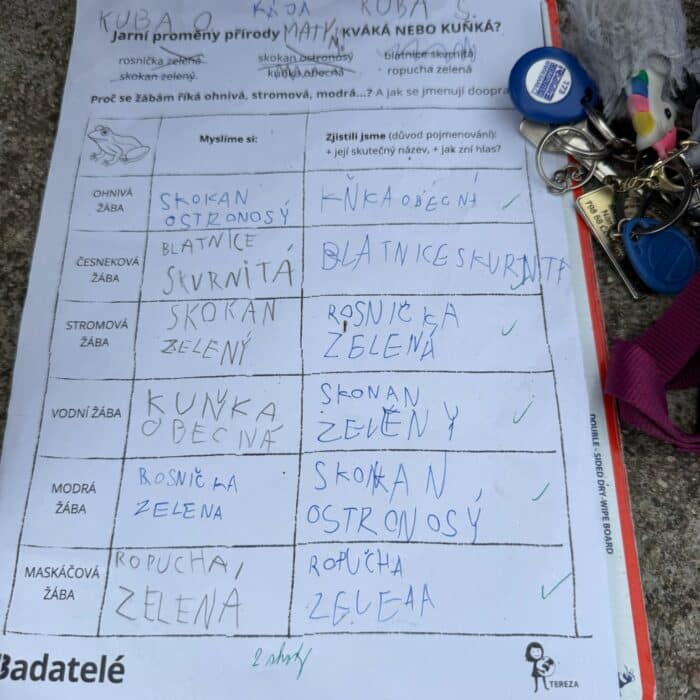 KUBA O. KÁJA KUBA S.
MATY
Jarní proměny přírody KVÁKÁ NEBO KUŇKÁ?
rosnička zelená skokan ostronosý blatnice skvrnitá
skokan zelený kuňka obecná ropucha zelená
Proč se žábám říká ohnivá, stromová, modrá...? A jak se jmenují doopra
Myslíme si: Zjistili jsme (důvod pojmenování):
+ její skutečný název, + jak zní hlas?
OHNIVÁ
ŽÁBA
SKOKAN
OSTRONOSÝ
KŇKA OBECNÁ
ČESNEKOVÁ
ŽÁBA
BLATNICE
SKVRNITÁ
BLATNICE SKVRNITA
STROMOVÁ
ŽÁBA
SKOKAN
ZELENÝ
ROSNIČKA
ZELENÁ
VODNÍ ŽÁBA
KUŇKA
OBECNÁ
SKONAN
ZELENÝ
MODRÁ
ŽÁBA
ROSNIČKA
ZELENA
SKOKAN
OSTRONOSÝ
MASKÁČOVÁ
ŽÁBA
ROPUCHA
ZELENA
ROPUČHA
2 shody
Badatelé
TEREZA
DOUBLE - SIDED DRY-WIPE BOARD
173